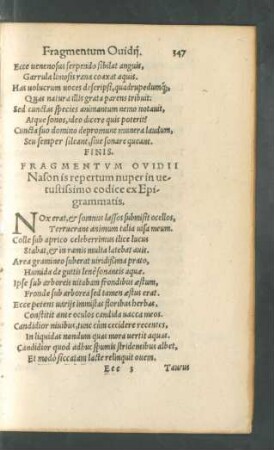 Fragmentum Ouidij. 347
Ecce uenenosus serpendo sibilat anguis,
Garrula limosis rana coaxat aquis.
Has uolucrum uoces descripsi, quadrupedumq́;,
Quas natura illis grata parens tribuit.
Sed cunctas species animantum nemo notauit,
Atque sonos, ideo dicere quis poterit?
Cuncta suo domino depromunt munera laudum,
Seu semper sileant, siue sonare queant.
FINIS.
FRAGMENTVM OVIDII
Nason is repertum nuper in ue-
tustissimo codice ex Epi-
grammatis.
NOx erat, & somnus lassos submisit ocellos,
Terruerunt animum talia uisa meum.
Colle sub aprico celeberrimus ilice lucus
Stabat, & in ramis multa latebat auis.
Area gramineo suberat uiridissima prato,
Humida de guttis lenè sonantis aquæ.
Ipse sub arboreis uitabam frondibus æstum,
Fronde sub arborea sed tamen æstus erat.
Ecce petens uarijs immistas floribus herbas,
Constitit ante oculos candida uacca meos.
Candidior niuibus, tunc cùm cecidere recentes,
In liquidas nondum quas mora uertit aquas.
Candidior quod adhuc spumis stridentibus albet,
Et modò siccatam lacte relinquit ouem.
Eee 3 Taurus